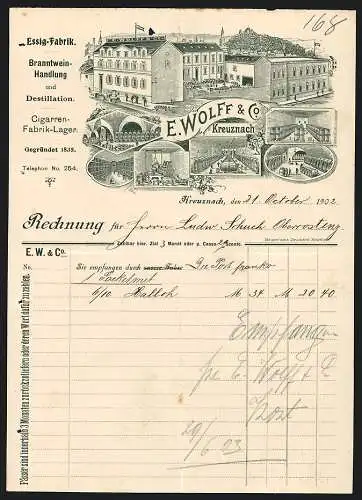 168
Essig-Fabrik.
Branntwein-
Handlung
und
Destillation.
Cigarren-
Fabrik-Lager.
Gegründet 1858.
Telephon No. 254.
E. WOLFF & Co.
Kreuznach
Kreuznach, den 21 October 1902
Rechnung für Herrn Ludw. Schuch
Zahlbar hier. Ziel 3 Monat oder p. Cassa 2% Sconto.
E. W. & Co.
No.
Sie empfangen durch Die Post franko
1
6/10 M 34 M 20 40
Empfangen
pr E. Wolff & Co
Post
29/6 03
Fässer sind innerhalb 3 Monaten zurückzuliefern oder deren Wert dafür zu zahlen.